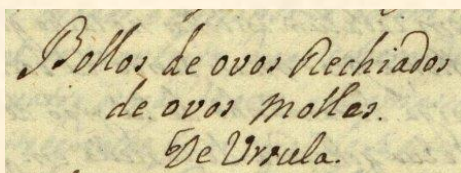 Bollos de ovos Rechiados
de ovos molles.
De Ursula.